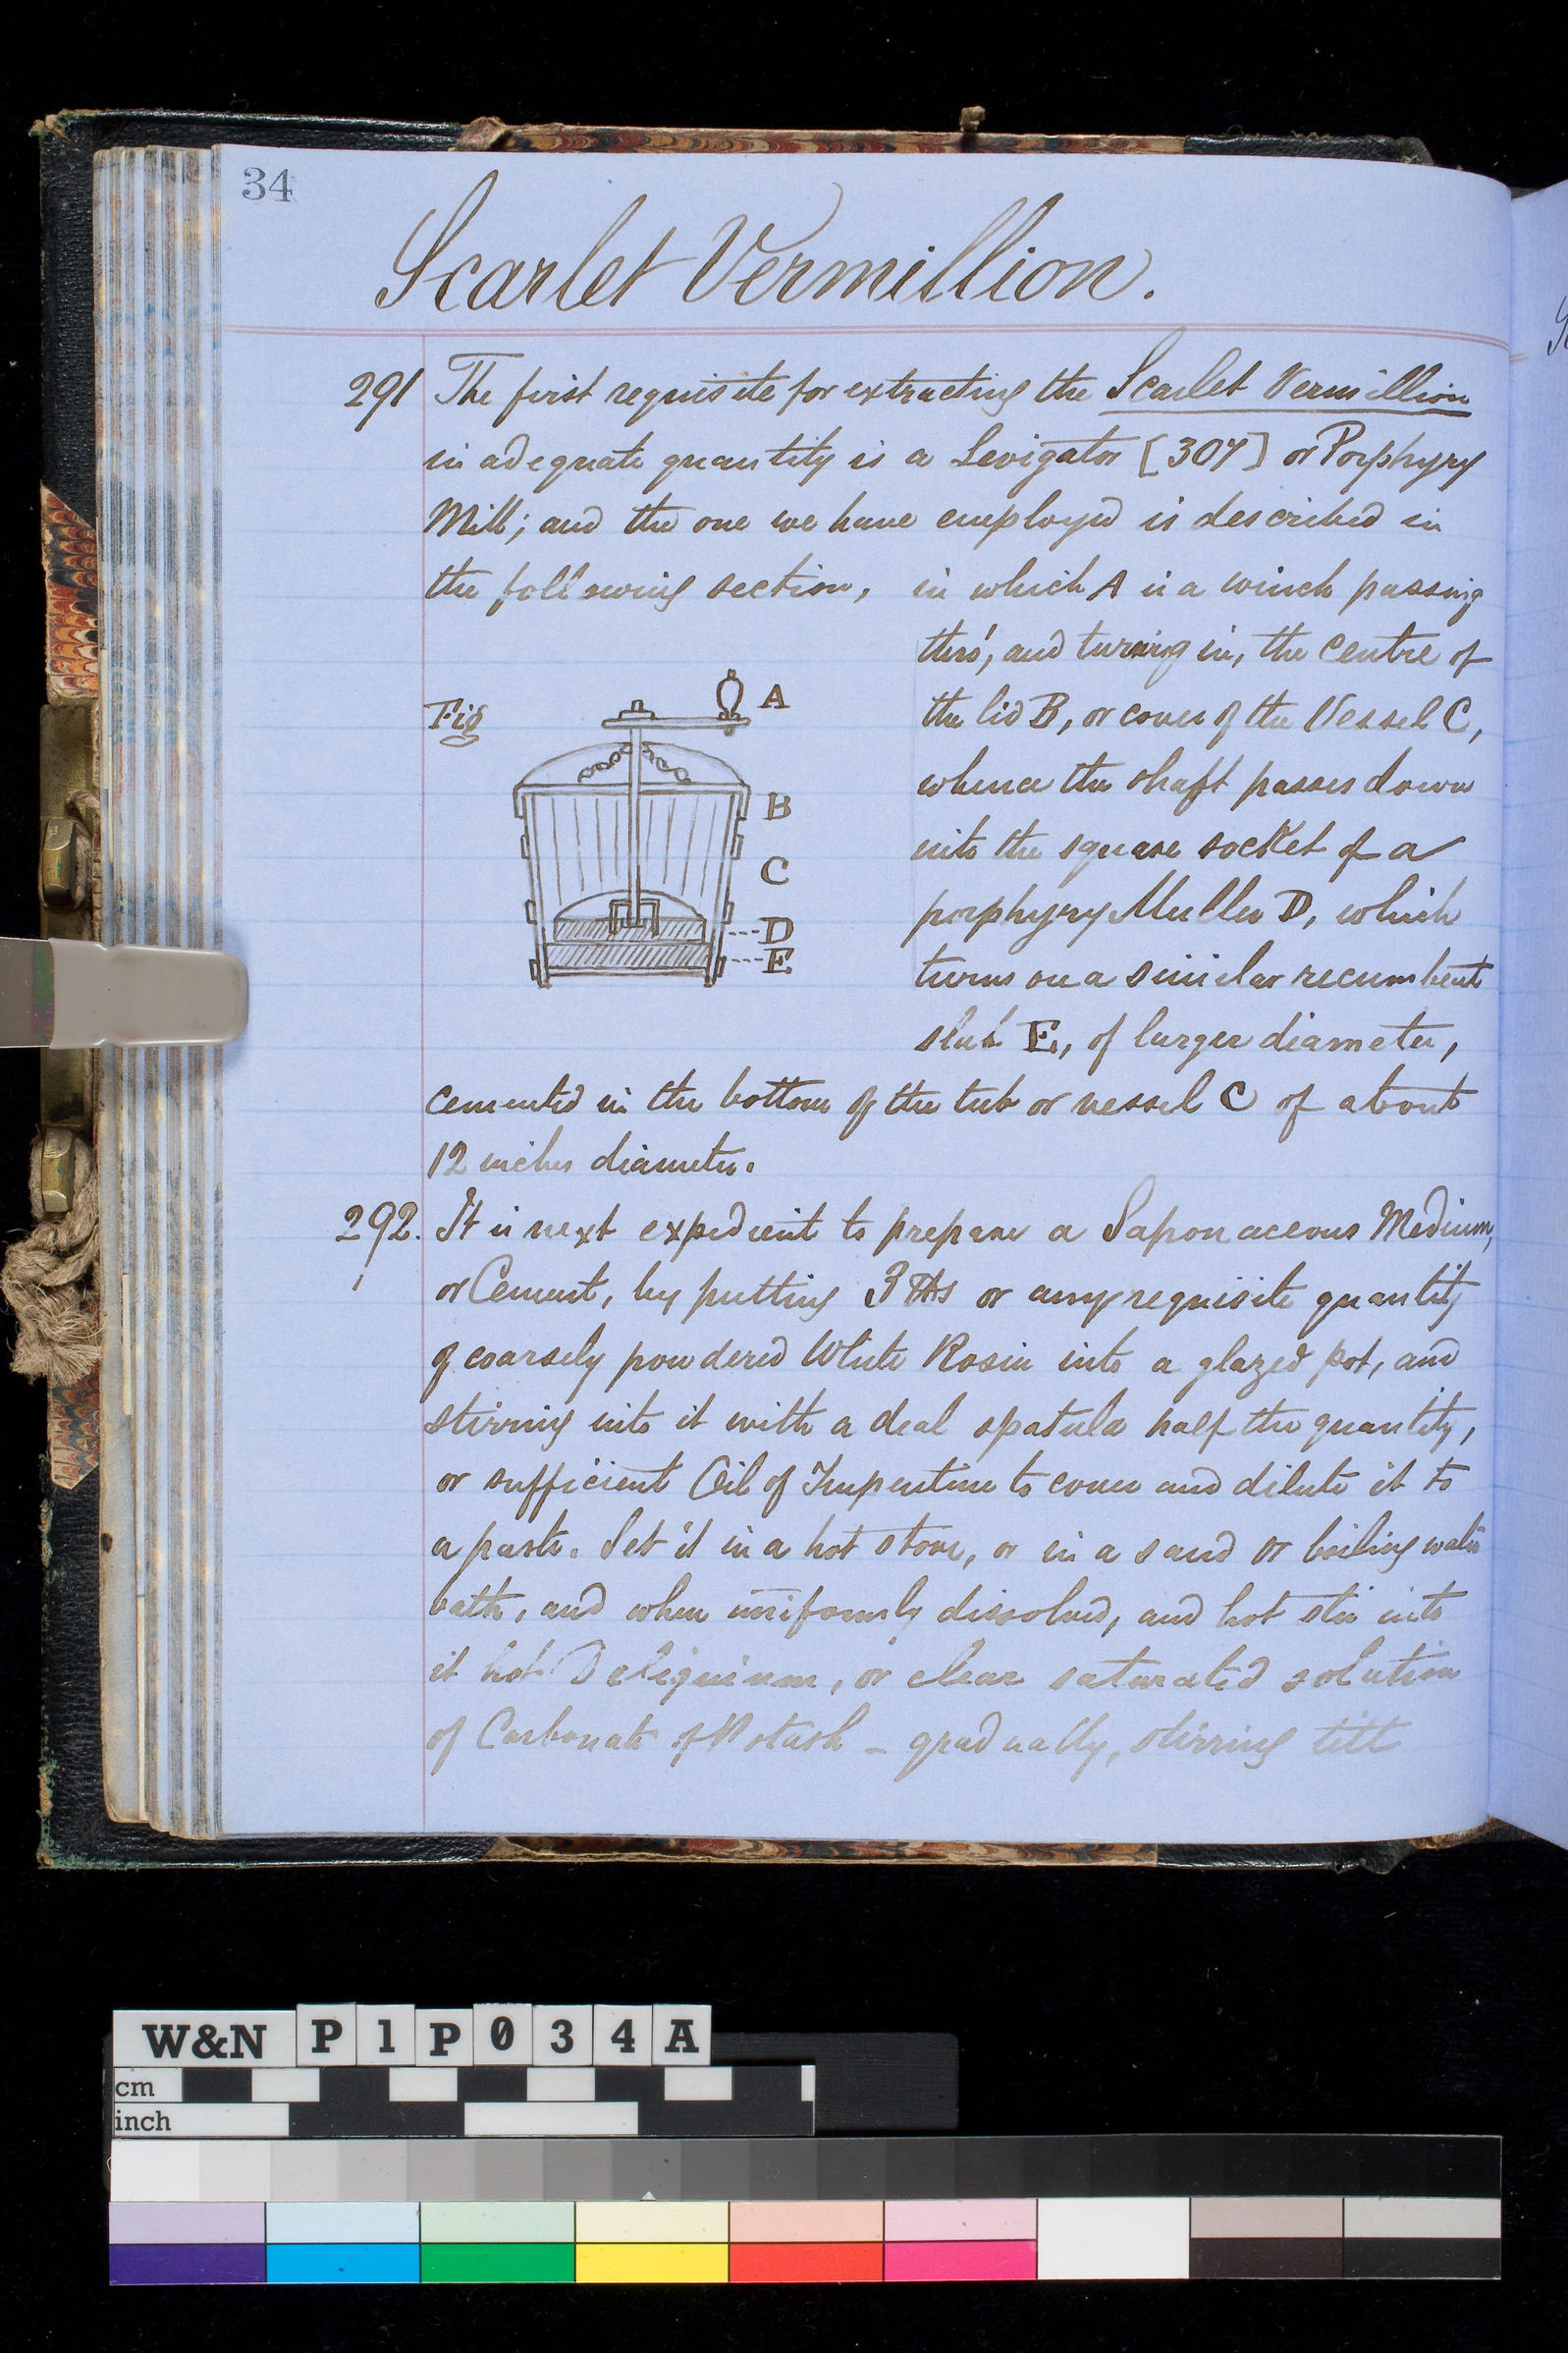 34
Scarlet Vermillion.
291 The first requisite for extracting the Scarlet Vermillion
in adequate quantity is a Levigator [307] or Porphyry
Mill; and the one we have employed is described in
the following section, in which A is a winch passing
thro', and turning in, the centre of
the lid B, or cover of the Vessel C,
whence the shaft passes down
into the square socket of a
porphyry Muller D, which
turns on a similar recumbent
slab E, of larger diameter,
Fig
A
B
C
D
E
cemented in the bottom of the tub or vessel C of about
12 inches diameter.
292. It is next expedient to prepare a Saponaceous Medium,
or Cement, by putting 3 lbs or any requisite quantity
of coarsely powdered White Rosin into a glazed pot, and
stirring into it with a deal spatula half the quantity,
or sufficient Oil of Turpentine to cover and dilute it to
a paste. Set it in a hot stove, or in a sand or boiling water
bath, and when uniformly dissolved, and hot stir into
it hot Deliquium, or clear saturated solution
of Carbonate of Potash – gradually, stirring till
W&N P1P034A
cm
inch